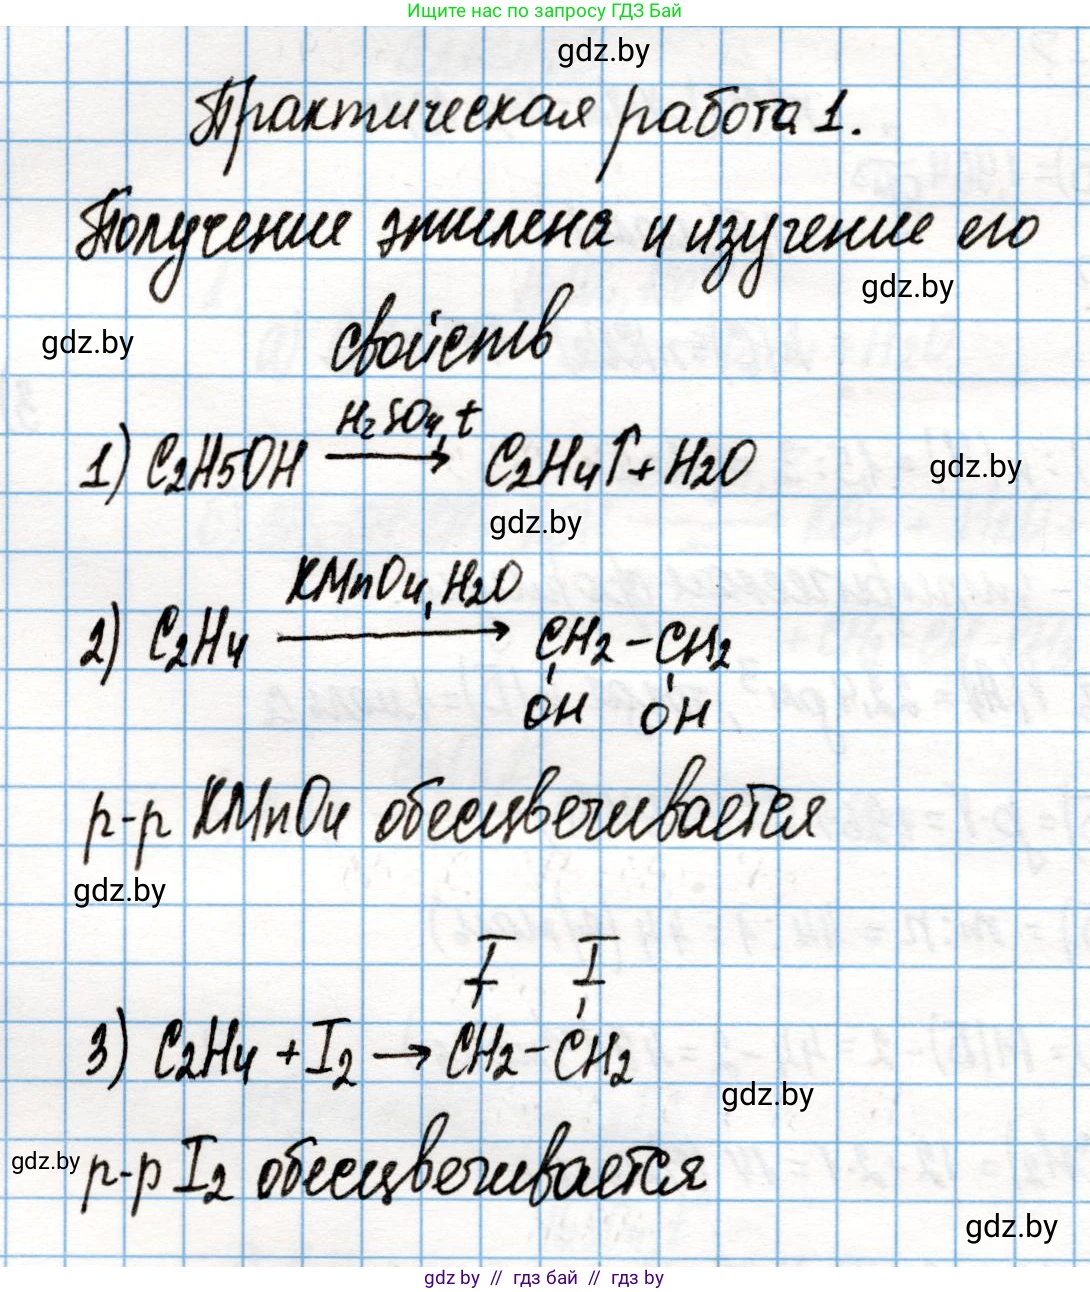 Ищите нас по запросу ГДЗ Бай
gdz.by
Практическая работа 1.
Получение этилена и изучение его
gdz.by
gdz.by
свойств
1) C2H5OH H2SO4, t → C2H4↑ + H2O
gdz.by
gdz.by
2) C2H4 KMnO4, H2O → CH2 - CH2
OH OH
р-р KMnO4 обесцвечивается
gdz.by
I I
3) C2H4 + I2 → CH2 - CH2
gdz.by
gdz.by
р-р I2 обесцвечивается
gdz.by
gdz by // гдз бай // гдз by